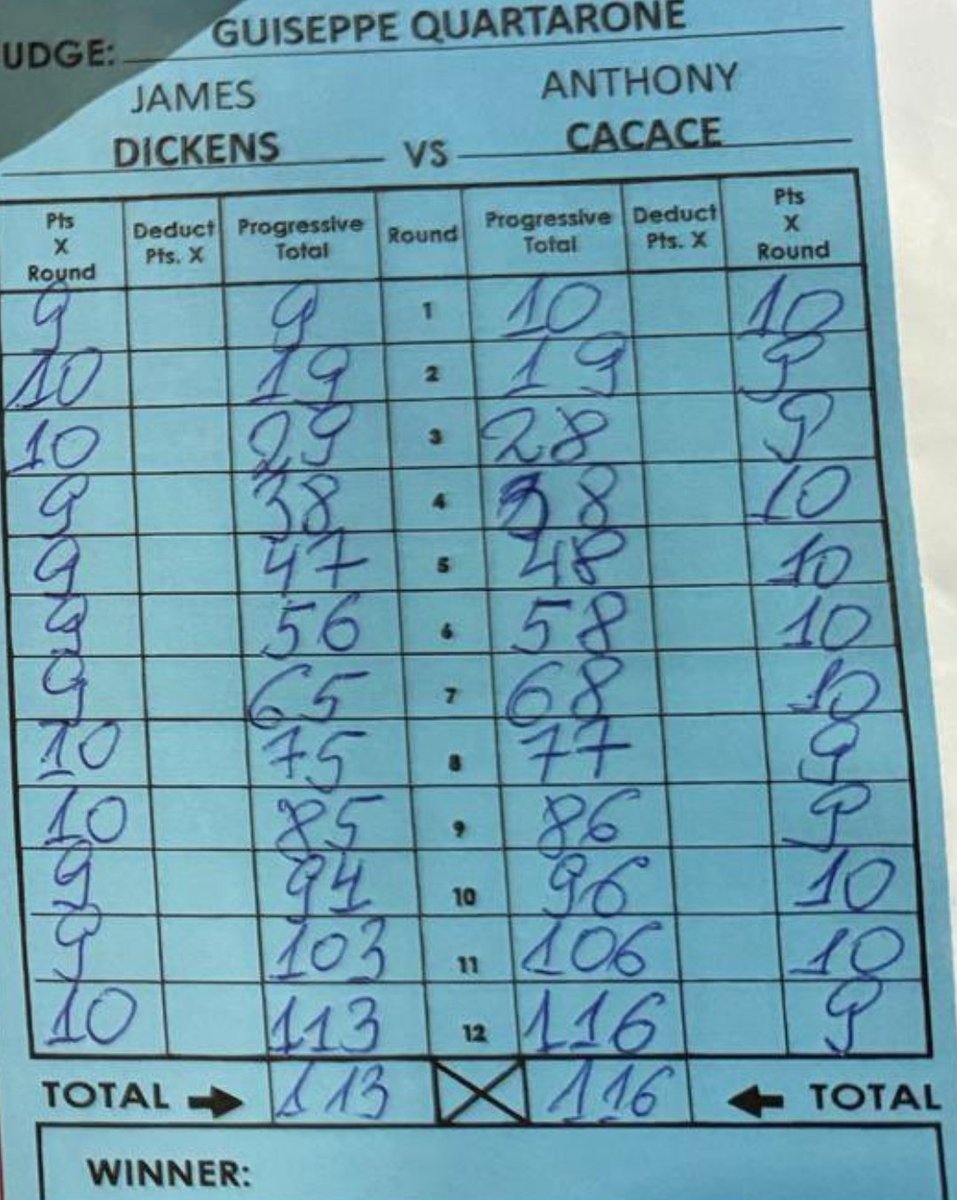 UDGE: GUISEPPE QUARTARONE
JAMES ANTHONY
DICKENS VS CACACE
Pts X Round Deduct Pts. X Progressive Total Round Progressive Total Deduct Pts. X Pts X Round
9 9 1 10 10
10 19 2 19 9
10 29 3 28 9
9 38 4 38 10
9 47 5 48 10
9 56 6 58 10
9 65 7 68 10
10 75 8 77 9
10 85 9 86 9
9 94 10 96 10
9 103 11 106 10
10 113 12 116 9
TOTAL 113 116 TOTAL
WINNER: